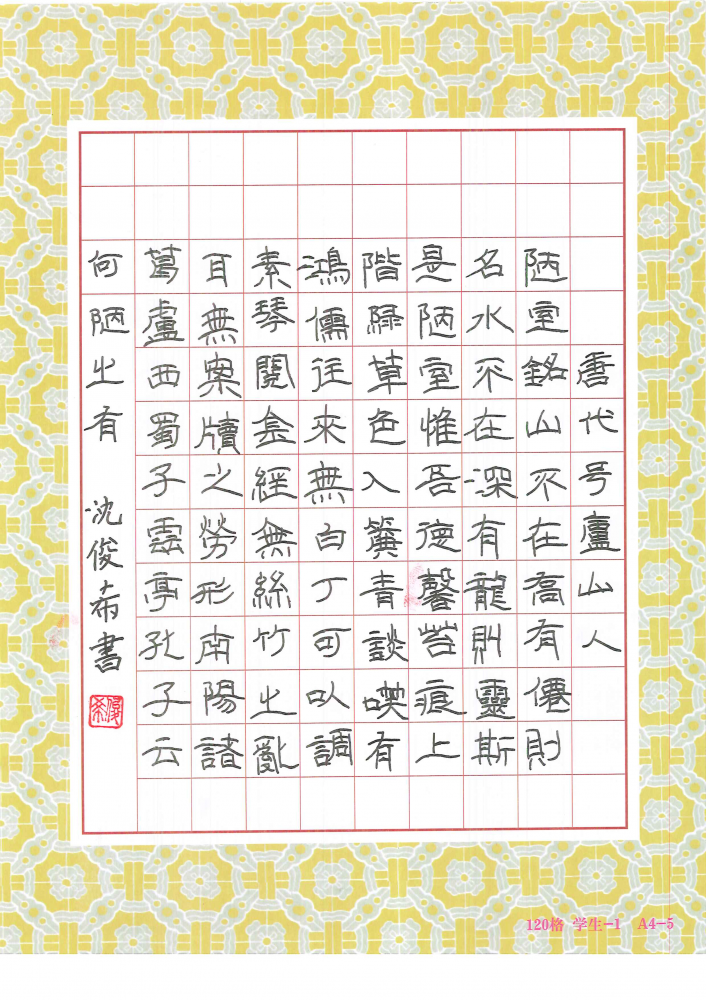 唐代号廬山人
陋室銘山不在高有僊則
名水不在深有龍則靈斯
是陋室惟吾德馨苔痕上
階緑草色入簾青談咲有
鴻儒往來無白丁可以調
素琴閱金經無絲竹之亂
耳無案牘之勞形南陽諸
葛盧西蜀子雲亭孔子云
何陋之有 沈俊希書
俊希
120格 学生-1 A4-5